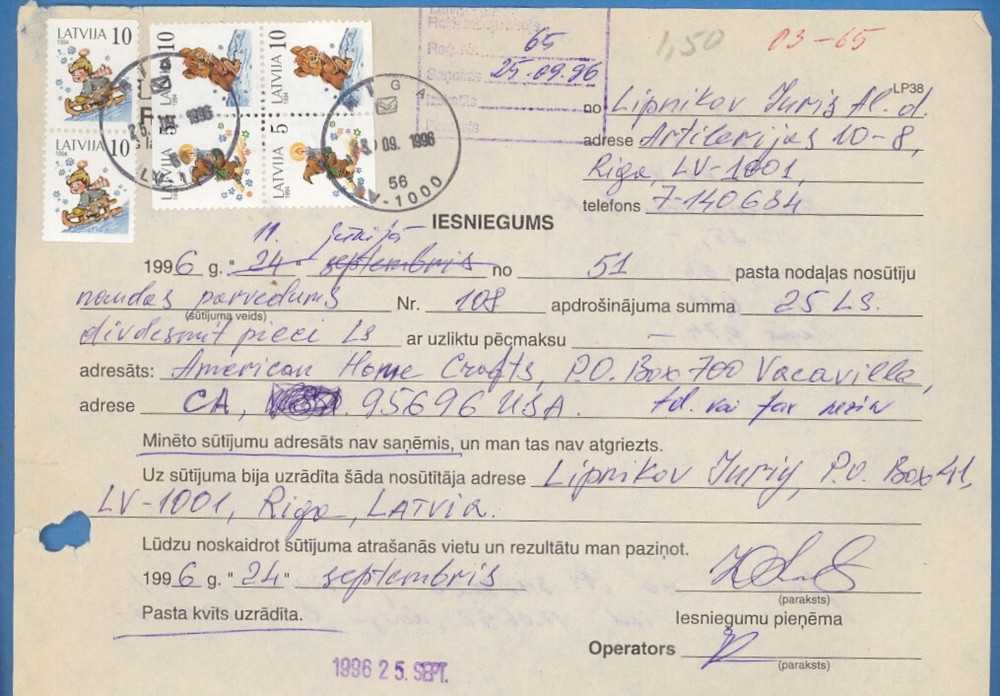 LATVIJA 10
1994
LATVIJA 10
1994
LATVIJA 10
1994
LATVIJA 10
1994
5
1994
5
1994
RIGA
09. 1996
56
LV-1000
Reģ. Nr. 65
Saņemts 25.09.96
1,50
03-65
LP38
no Lipnikov Juris Al. d.
adrese Artilerijas 10-8,
Riga, LV-1001,
telefons 7-140634
IESNIEGUMS
11. jūnijā
1996 g. "24" septembris no 51 pasta nodaļas nosūtīju
naudas parvedums Nr. 108 apdrošinājuma summa 25 LS.
(sūtījuma veids)
divdesmit pieci Ls ar uzliktu pēcmaksu —
adresāts: American Home Crafts, P.O. Box 700 Vacaville,
adrese CA, 95696 USA. tel. vai fax nezin
Minēto sūtījumu adresāts nav saņēmis, un man tas nav atgriezts.
Uz sūtījuma bija uzrādīta šāda nosūtītāja adrese Lipnikov Jurij, P.O. Box 41,
LV-1001, Riga, LATVIA.
Lūdzu noskaidrot sūtījuma atrašanās vietu un rezultātu man paziņot.
1996 g. "24" septembris
(paraksts)
Pasta kvīts uzrādīta.
Iesniegumu pieņēma
Operators
(paraksts)
1996 25. SEPT.